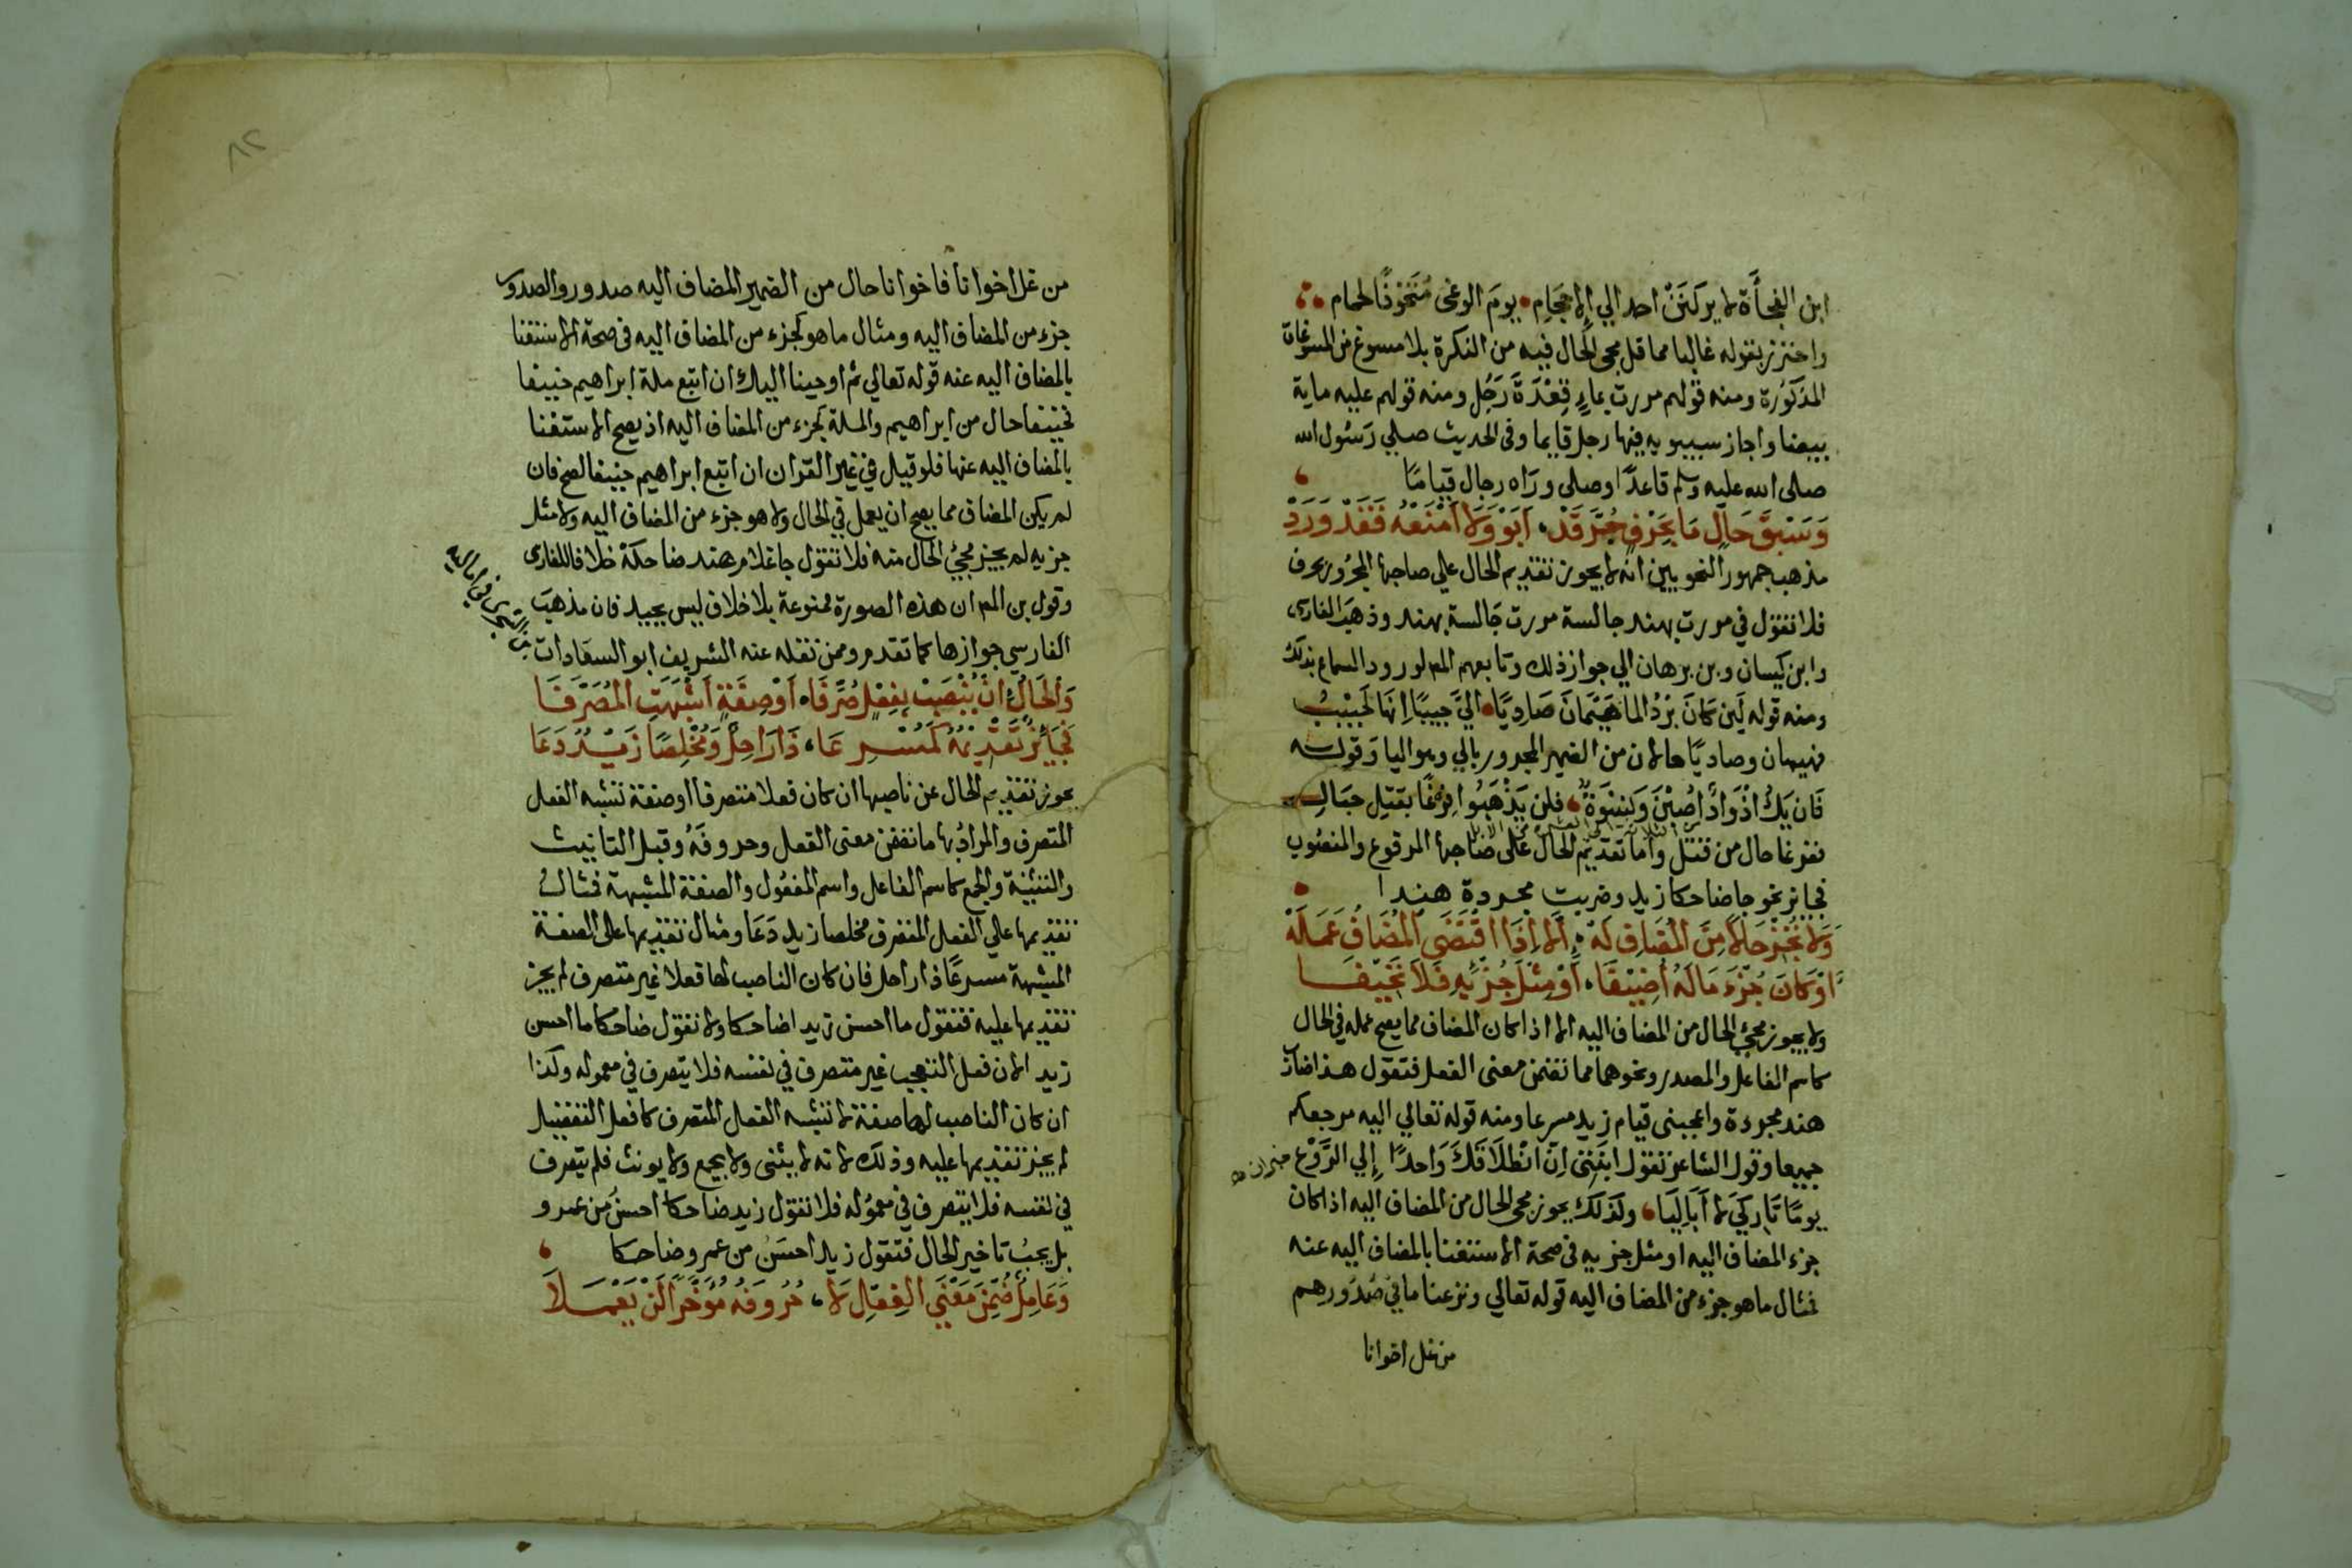 ابن الفجأة لا يركنن احد الي الاحجام يوم الوغى متخوفا لحمام
واحترز بقوله غالبا مما قل مجى الحال فيه من النكرة بلا مسوغ من المسوغات
المذكورة ومنه قولهم مررت بماء قعدة رجل ومنه قولهم عليه ماية
بيضا واجاز سيبويه فيها رجل قايما وفى الحديث صلي رسول الله
صلى الله عليه وسلم قاعدا وصلى وراه رجال قياما
وسبق حال ما بحرف جر قد ابوا ولا امنعه فقد ورد
مذهب جمهور النحويين انه لا يجوز تقديم الحال علي صاحبها المجرور بحرف
فلا تقول في مررت بهند جالسة مررت جالسة بهند وذهب الفارسى
وابن كيسان وبن برهان الي جواز ذلك وتابعهم المص لورود السماع بذلك
ومنه قوله لين كان برد الما هيمان صاديا الي حبيبا انها لحبيب
فهيمان وصاديا حالان من الضمير المجرور بالي وهو اليا وقوله
فان يك اذواد اصبن ونسوة فلن يذهبوا فرغا بقتل حبال
ففرغا حال من قتل واما تقديم الحال على صاحبها المرفوع والمنصوب
فجايز نحو جا ضاحكا زيد وضربت مجردة هندا
ولا تجز حالا من المضاف له الا اذا اقتضى المضاف عمله
او كان جزء ماله اضيفا او مثل جزئه فلا تحيفا
ولا يجوز مجئ الحال من المضاف اليه الا اذا كان المضاف مما يصح عمله في الحال
كاسم الفاعل والمصدر ونحوهما مما تضمن معنى الفعل فتقول هذا ضارب
هند مجردة واعجبنى قيام زيد مسرعا ومنه قوله تعالي اليه مرجعكم
جميعا وقول الشاعر تقول ابنتى ان انطلاقك واحدا إلي الروع
يوما تاركي لا اباليا وكذلك يجوز مجى الحال من المضاف اليه اذا كان
جزء المضاف اليه او مثل جزيه فى صحة الاستغنا بالمضاف اليه عنه
فمثال ما هو جزء من المضاف اليه قوله تعالي ونزعنا ما في صدورهم
من غل اخوانا
٨٢
من غل اخوانا فاخوانا حال من الضمير المضاف اليه صدور والصدور
جزء من المضاف اليه ومثال ما هو كجزء من المضاف اليه فى صحة الاستغنا
بالمضاف اليه عنه قوله تعالي ثم اوحينا اليك ان اتبع ملة ابراهيم حنيفا
فحنيفا حال من ابراهيم والملة كجزء من المضاف اليه اذ يصح الاستغنا
بالمضاف اليه عنها فلو قيل في غير القران ان اتبع ابراهيم حنيفا لصح فان
لم يكن المضاف مما يصح ان يعمل في الحال ولا هو جزء من المضاف اليه ولا مثل
جزيه لم يجز مجئ الحال منه فلا تقول جا غلام هند ضاحكة خلافا للفارسى
وقول بن المص ان هذه الصورة ممنوعة بلا خلاف ليس بجيد فان مذهب
الفارسي جوازها كما تقدم وممن نقله عنه الشريف ابو السعادات
والحال ان ينصب بفعل صرفا او صفة اشبهت المصرفا
فجايز تقديمه كمسرعا ذا راحل ومخلصا زيد دعا
يجوز تقديم الحال عن ناصبها ان كان فعلا متصرفا او صفة تشبه الفعل
المتصرف والمراد بها ما تضمن معنى الفعل وحروفه وقبل التانيث
والتثنية والجمع كاسم الفاعل واسم المفعول والصفة المشبهة فمثال
تقديمها علي الفعل المتصرف مخلصا زيد دعا ومثال تقديمها على الصفة
المشبهة مسرعا ذا راحل فان كان الناصب لها فعلا غير متصرف لم يجز
تقديمها عليه فتقول ما احسن زيدا ضاحكا ولا تقول ضاحكا ما احسن
زيدا لان فعل التعجب غير متصرف في نفسه فلا يتصرف في معموله وكذا
ان كان الناصب لها صفة لا تشبه الفعل المتصرف كافعل التفضيل
لم يجز تقديمها عليه وذلك لانه لا يثنى ولا يجمع ولا يونث فلم يتصرف
في نفسه فلا يتصرف في معموله فلا تقول زيد ضاحكا احسن من عمرو
بل يجب تاخير الحال فتقول زيد احسن من عمرو ضاحكا
وعامل ضمن معنى الفعل لا حروفه مؤخرا لن يعملا